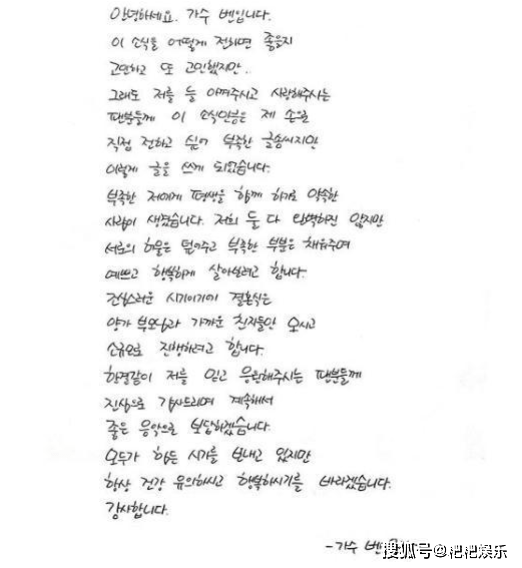 안녕하세요. 가수 벤입니다.
이 소식을 어떻게 전하면 좋을지
고민하고 또 고민했지만..
그래도 저를 늘 아껴주시고 사랑해주시는
팬분들께 이 소식만큼은 제 손으로
직접 전하고 싶어 부족한 글솜씨지만
이렇게 글을 쓰게 되었습니다.
부족한 저에게 평생을 함께 하기로 약속한
사람이 생겼습니다. 저희 둘 다 완벽하진 않지만
서로의 허물은 덮어주고 부족한 부분은 채워주며
예쁘고 행복하게 살아보려고 합니다.
조심스러운 시기이기에 결혼식은
양가 부모님과 가까운 친지들만 모시고
소규모로 진행하려고 합니다.
한결같이 저를 믿고 응원해주시는 팬분들께
진심으로 감사드리며 계속해서
좋은 음악으로 보답하겠습니다.
모두가 힘든 시기를 보내고 있지만
항상 건강 유의하시고 행복하시기를 바라겠습니다.
감사합니다.
-가수 벤
搜狐号@耙耙娱乐